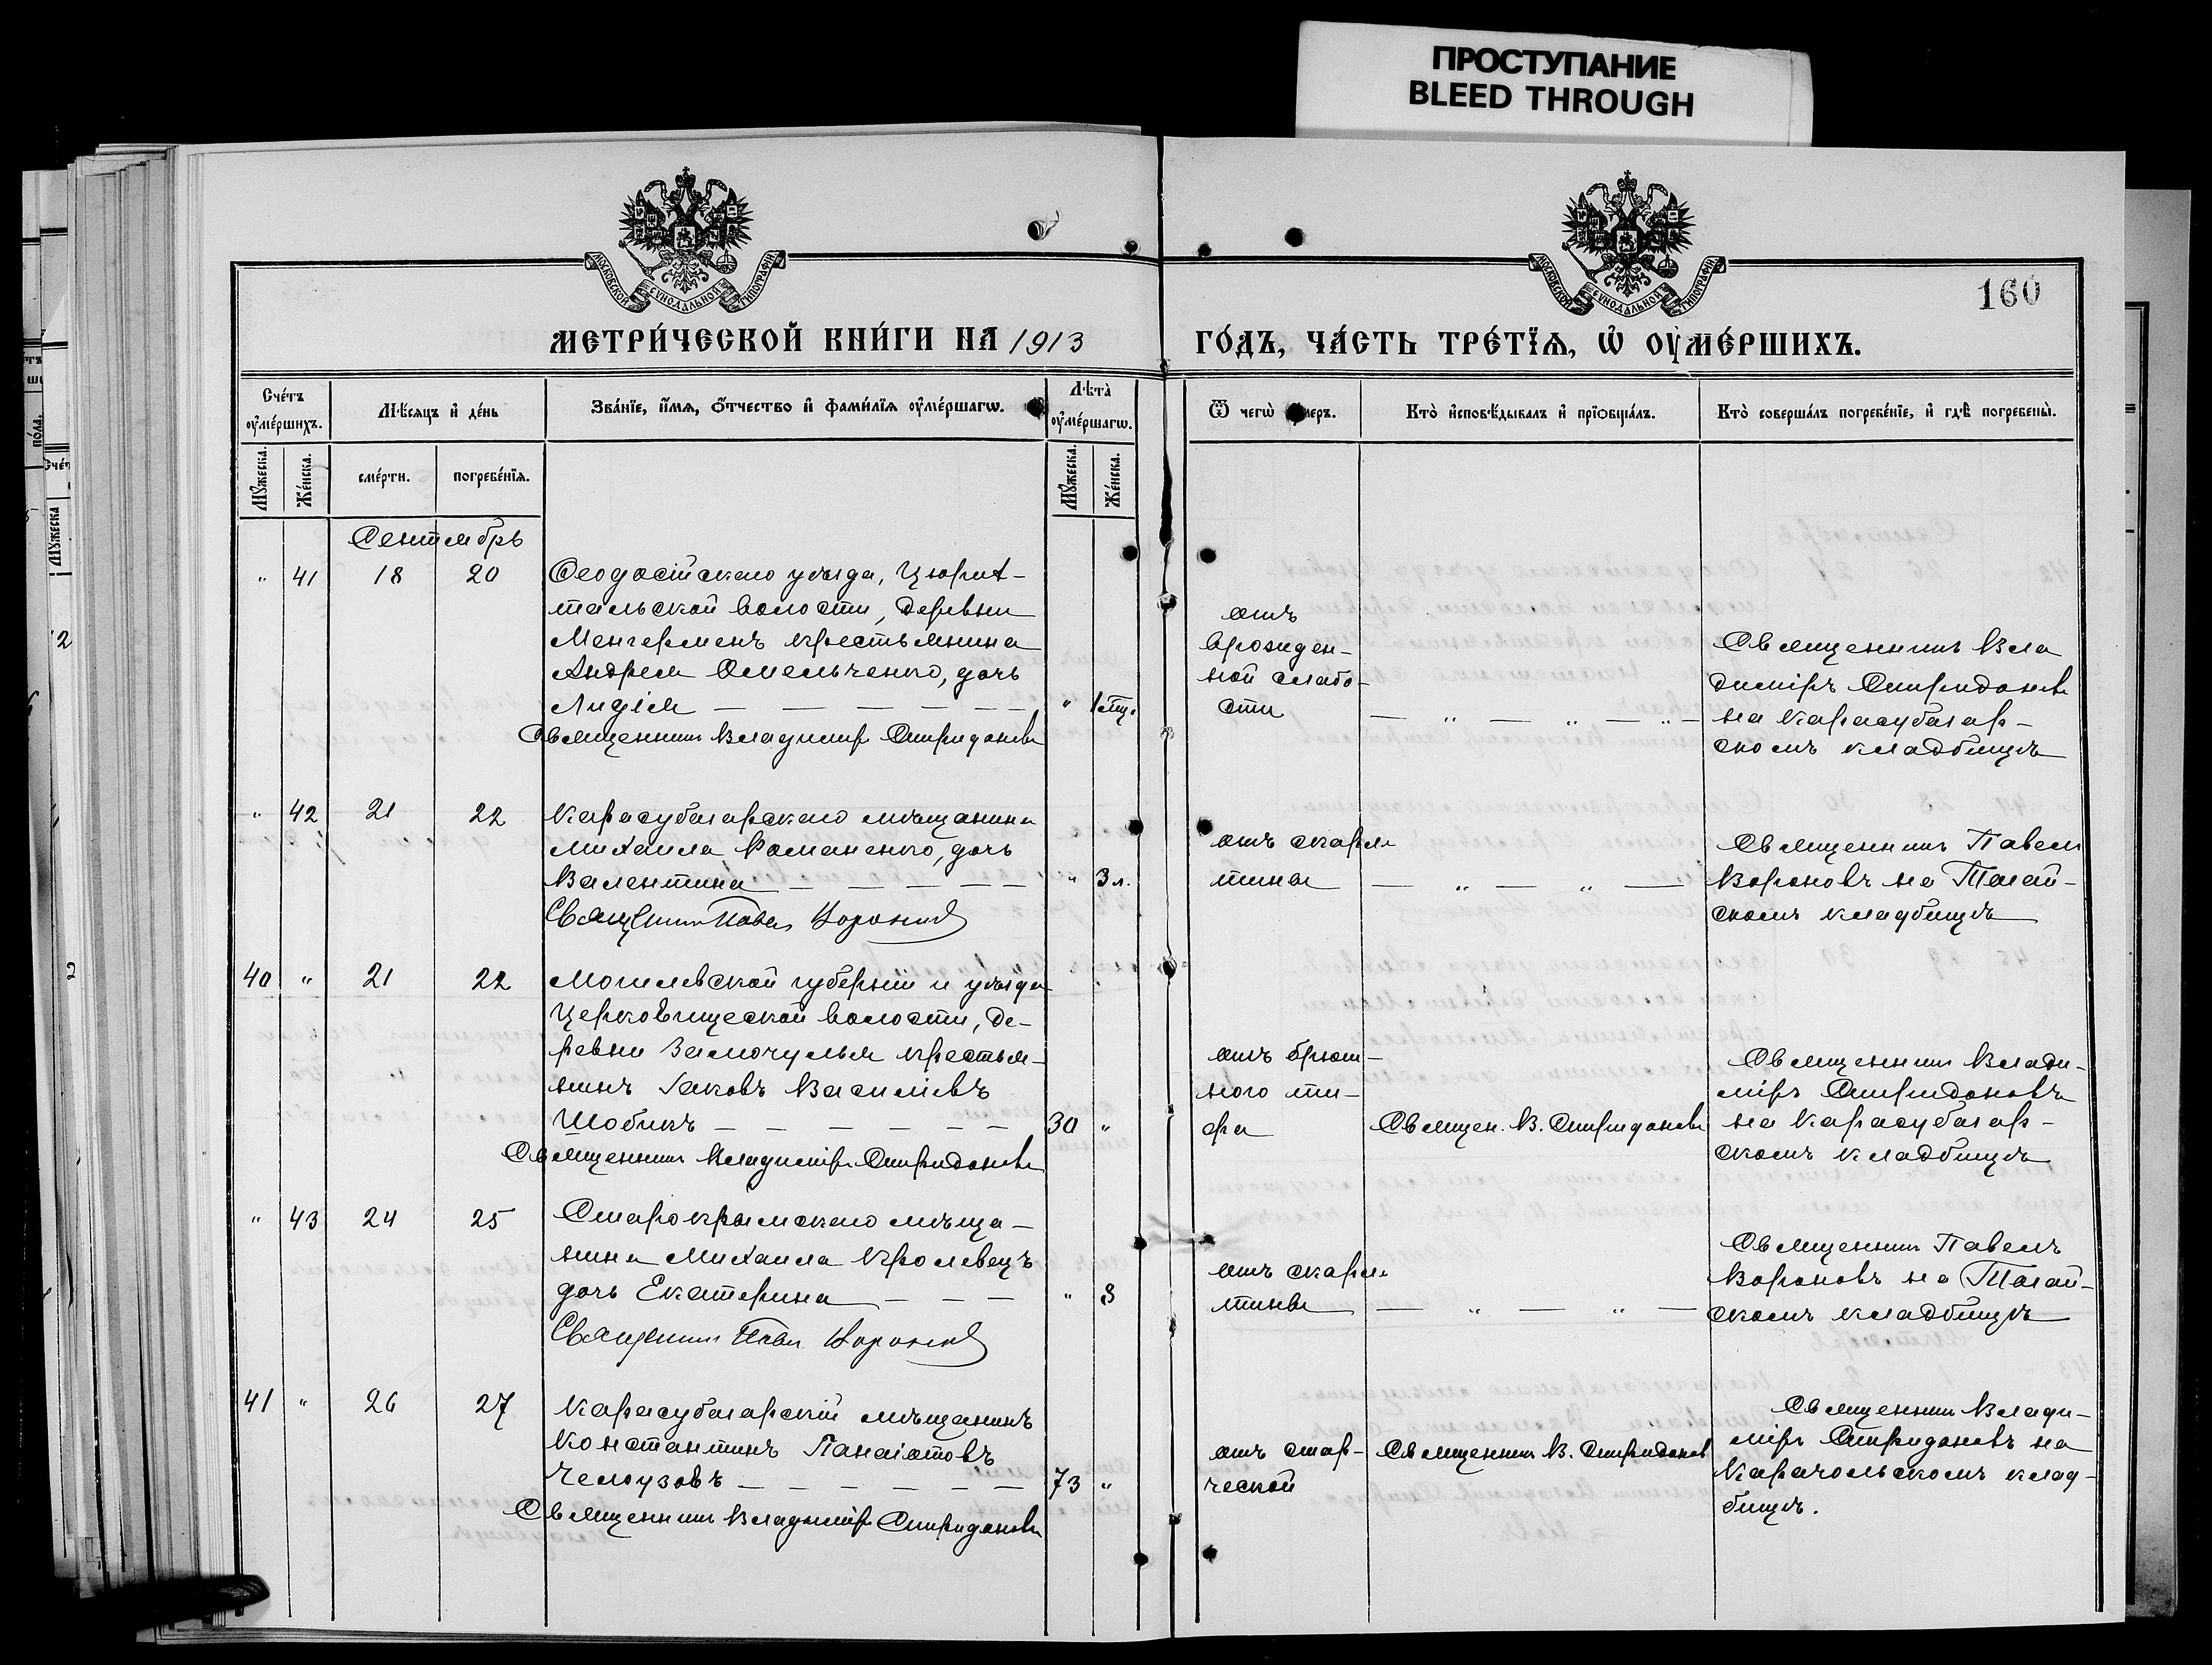 ПРОСТУПАНИЕ
BLEED THROUGH
МОСКОВСКОЙ СѴНОДАЛЬНОЙ ТИПОГРАФІИ
МОСКОВСКОЙ СѴНОДАЛЬНОЙ ТИПОГРАФІИ
160
МЕТРИ́ЧЕСКОЙ КНИ́ГИ НА 1913 ГО́ДЪ, ЧА́СТЬ ТРЕ́ТЇѦ, Ѡ҆ ОУ҆МЕ́РШИХЪ.
Сче́тъ оу҆ме́ршихъ.
Мѣ́сѧцъ и҆ де́нь
Зва́нїе, и҆́мѧ, ѻ҆́тчество и҆ фами́лїѧ оу҆ме́ршагѡ.
Лѣ́та оу҆ме́ршагѡ.
Ѿ чегѡ̀
Кто̀ и҆сповѣ́дывалъ и҆ прїѡбща́лъ.
Кто̀ соверша́лъ погребе́нїе, и҆ гдѣ̀ погребены̀.
Мꙋ́жеска. Же́нска. сме́рти. погребе́нїѧ. Мꙋ́жеска. Же́нска.
Сентябрь
" 41 18 20 Ѳеодосійскаго уѣзда, Цюрих-
тальской волости, деревни
Менгерменъ крестьянина
Андрея Омельченко, дочь
Лидія — — — — — " 1 
Священникъ Владимір Спиридоновъ
отъ
врожден-
ной слабо-
сти
— " — " — " —
Священникъ Вла
диміръ Спиридоновъ
на Карасубазар-
скомъ кладбищѣ
" 42 21 22 Карасубазарскаго мѣщанина
Михаила Романенко, дочь
Валентина — — — — " 3 л.
Священник Павел Воронов
отъ скарла
тины — " — " —
Священникъ Павелъ
Вороновъ на Тагай-
скомъ кладбищѣ
40 " 21 22 Могилевской губерніи и уѣзда
Церковищеской волости, де-
ревни Замочулья крестья-
нинъ Іаковъ Василіевъ
Шобикъ — — — — — 30 "
Священникъ Владимір Спиридоновъ
отъ брюш-
ного ти-
фа Священ. В. Спиридоновъ
Священникъ Влади-
міръ Спиридоновъ
на Карасубазар-
скомъ кладбищѣ
" 43 24 25 Старокрымскаго мѣща-
нина Михаила Кролевецъ
дочь Екатерина — — — " 3
Священник Павел Воронов
отъ скарла
тины — " — " —
Священникъ Павелъ
Вороновъ на Тагай-
скомъ кладбищѣ
41 " 26 27 Карасубазарскій мѣщанинъ
Константинъ Панаіотовъ
Челоузовъ — — — — — 73 "
Священникъ Владимір Спиридоновъ
отъ стар-
ческой
Священникъ В. Спиридонов
Священникъ Влади-
міръ Спиридоновъ на
Карачольскомъ клад-
бищѣ.